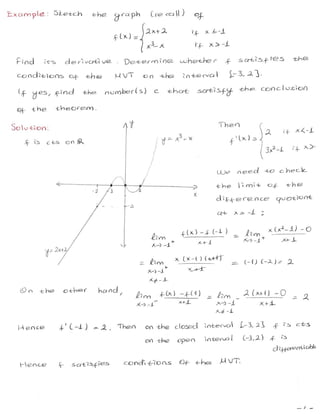 Example: Sketch the graph (recall) of
f(x) = { 2x+2 if x ≤ -1
x³-x if x > -1
Find its derivative. Determine whether f satisfies the
conditions of the MVT on the interval [-3, 2].
If yes, find the number(s) c that satisfy the conclusion
of the theorem.
Solution:
f is cts on R
y
y = x³-x
x
y = 2x+2
Then
f'(x) = { 2 if x < -1
3x²-1 if x >
We need to check
the limit of the
difference quotient
at x = -1 :
lim x→-1⁺ f(x) - f(-1) / x+1 = lim x→-1⁺ x(x²-1) - 0 / x+1
= lim x→-1⁺ x≠-1 x(x-1)(x+1) / x+1 = (-1)(-2) = 2
On the other hand, lim x→-1⁻ f(x) - f(-1) / x+1 = lim x→-1⁻ x≠-1 2(x+1) - 0 / x+1 = 2
Hence f'(-1) = 2. Then on the closed interval [-3, 2] f is cts
on the open interval (-3,2) f is
differentiable
Hence f satisfies conditions of the MVT.